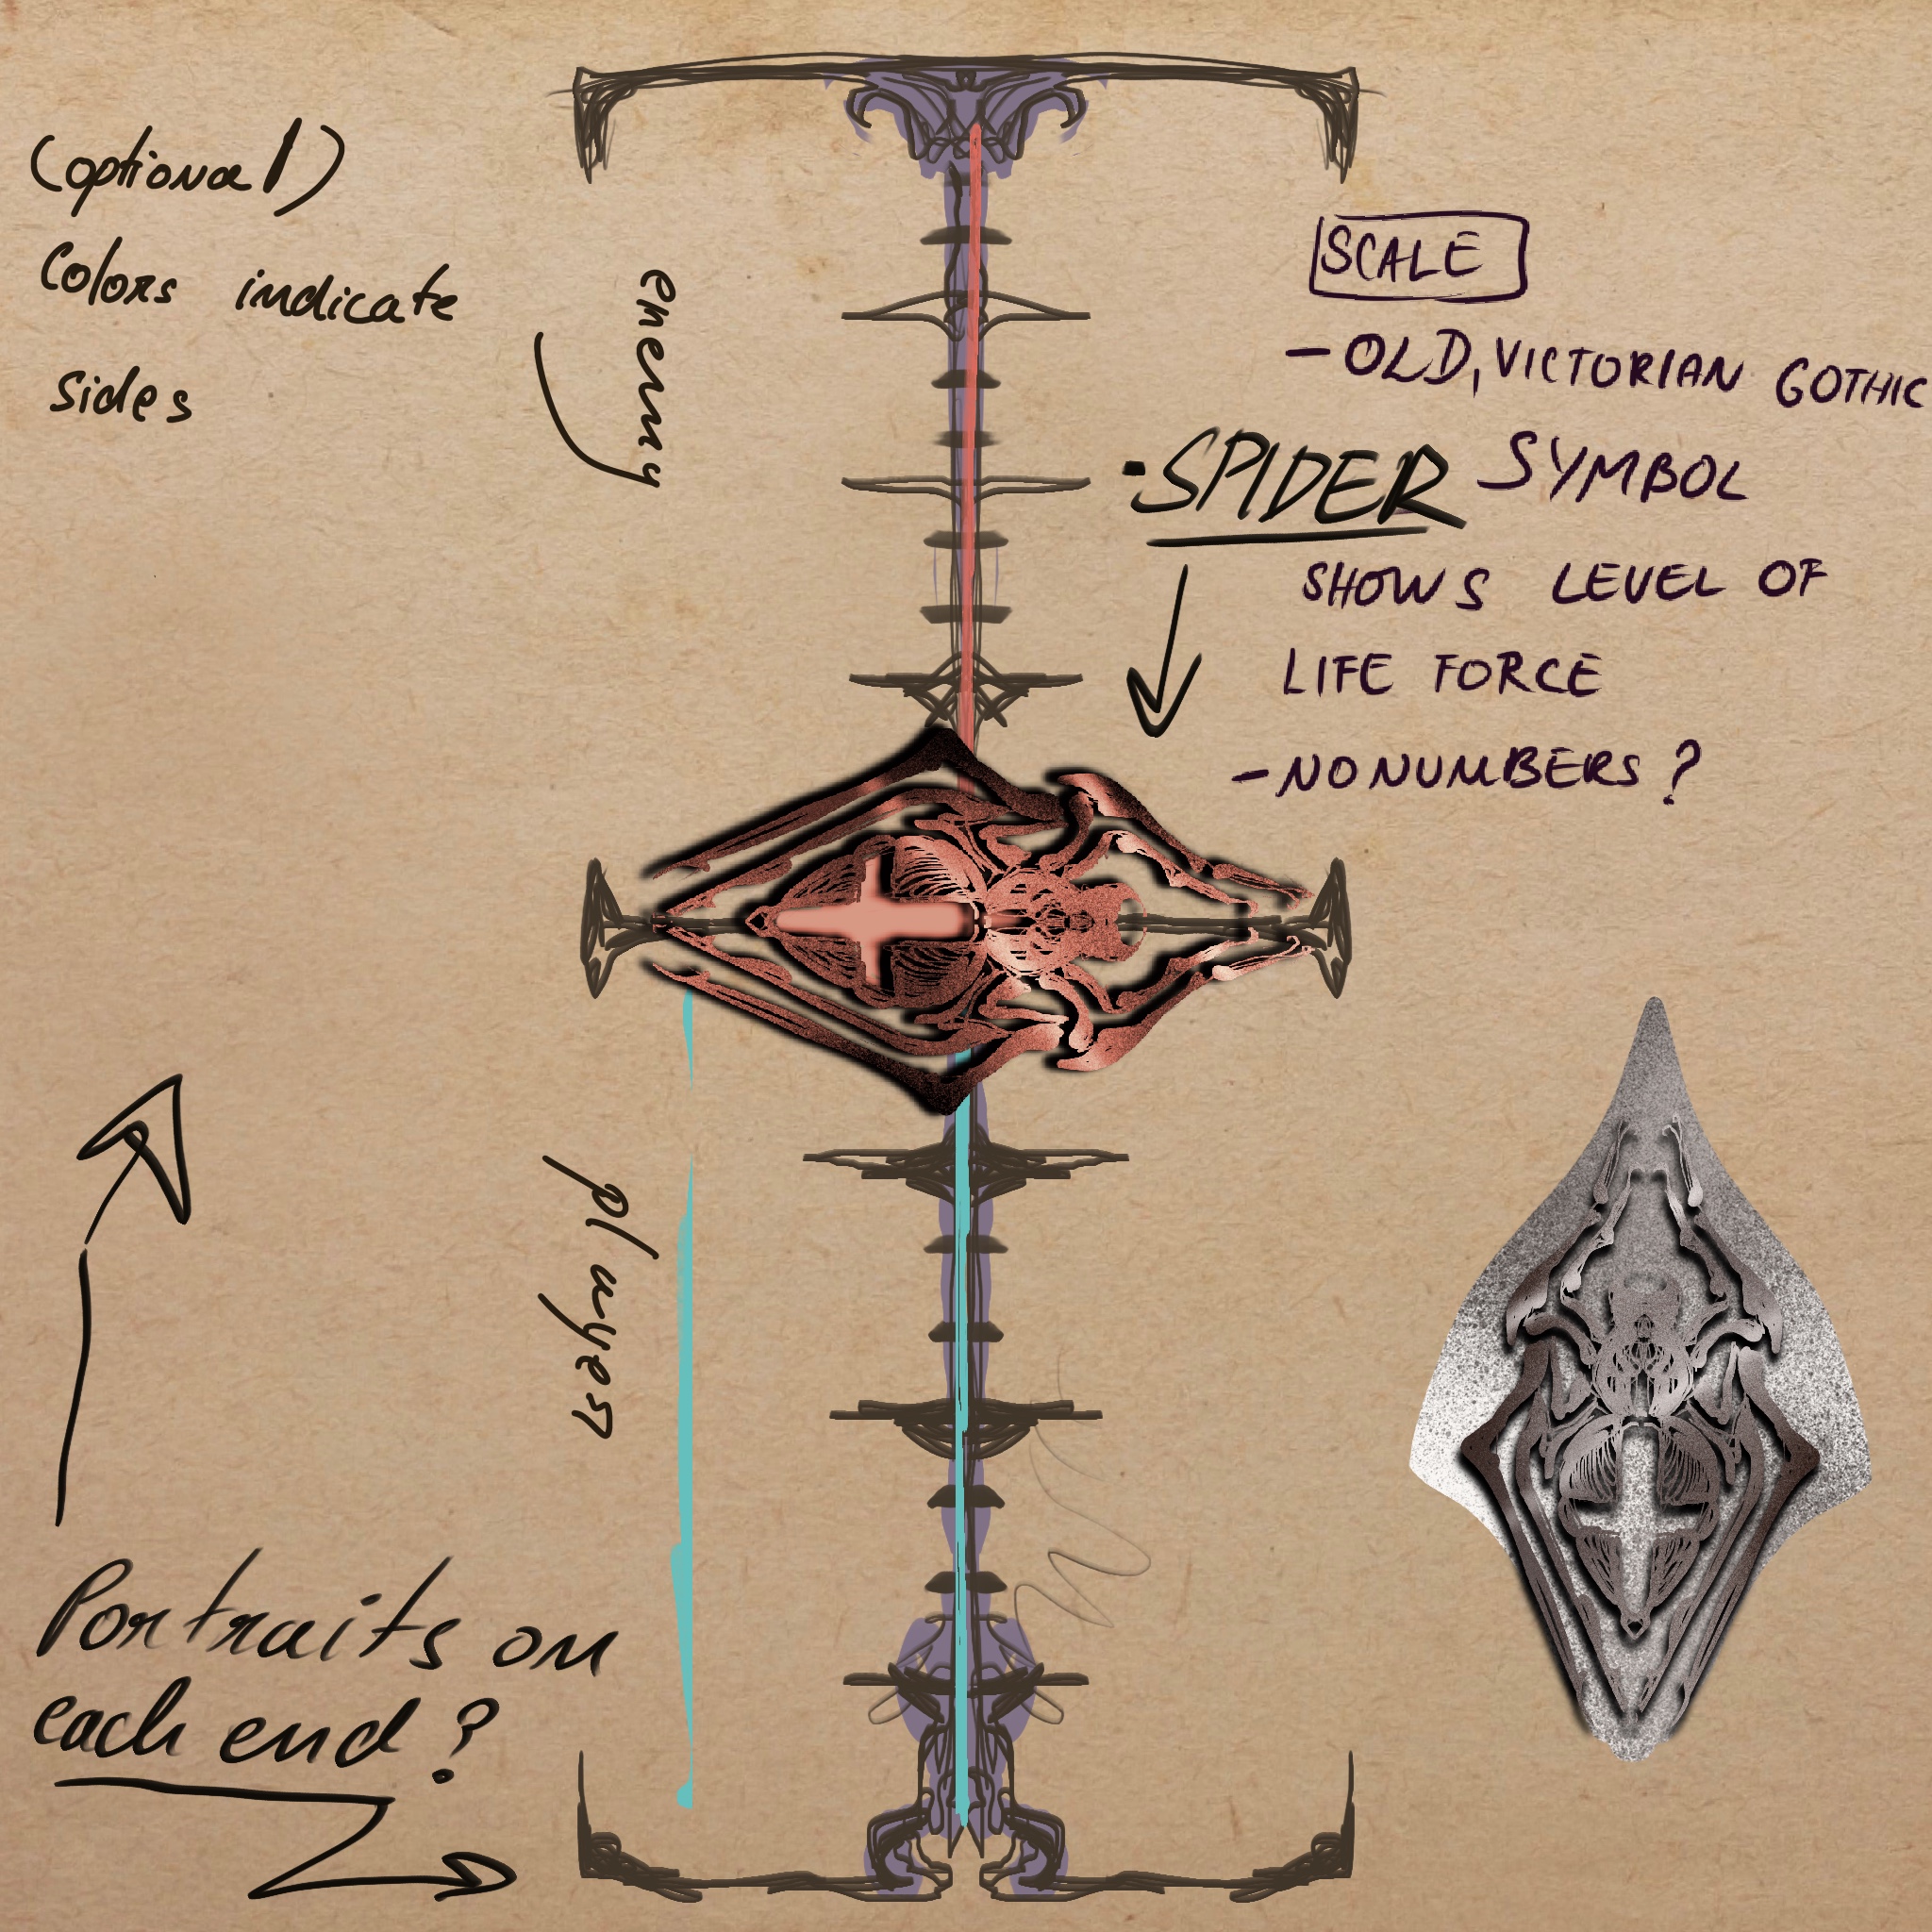 (optional)
Colors indicate
sides
enemy
SCALE
- OLD, VICTORIAN GOTHIC
• SPIDER SYMBOL
SHOWS LEVEL OF
LIFE FORCE
- NO NUMBERS ?
player
Portraits on
each end ?